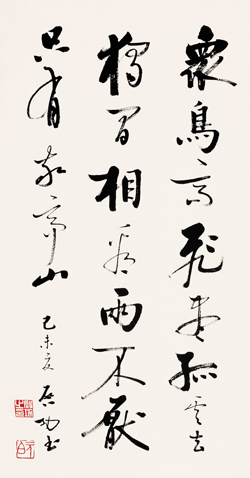 衆鳥高飛盡孤云去
獨閒相看兩不厭
只有敬亭山
己未夏 啓功書